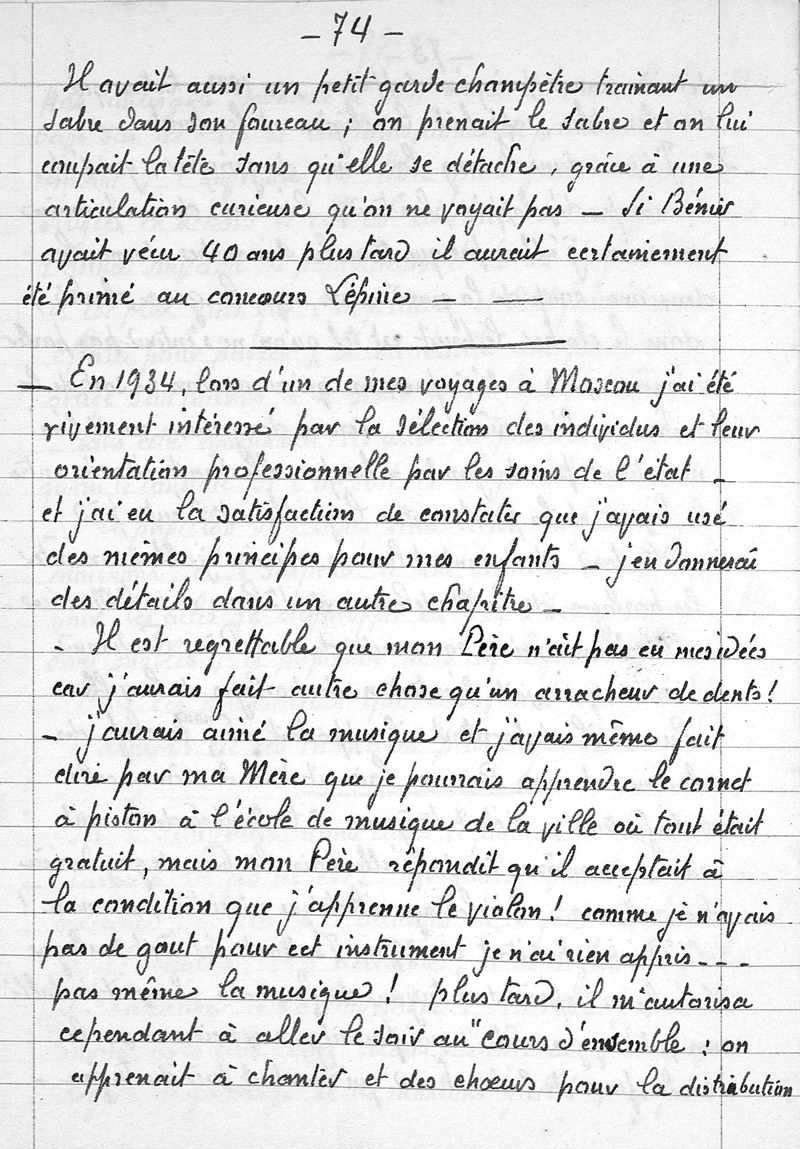 - 74 -
Il avait aussi un petit garde champètre trainant un
sabre dans son foureau ; on prenait le sabre et on lui
coupait la tête sans qu'elle se détache, grâce à une
articulation curieuse qu'on ne voyait pas - Si Bénier
avait vécu 40 ans plus tard il aurait certainement
été primé au concours Lépine - —
— En 1934, lors d'un de mes voyages à Moscou j'ai été
vivement intéressé par la sélection des individus et leur
orientation professionnelle par les soins de l'état -
et j'ai eu la satisfaction de constater que j'avais usé
des mêmes principes pour mes enfants - j'en donnerai
des détails dans un autre chapitre -
- Il est regrettable que mon Père n'ait pas eu mes idées
car j'aurais fait autre chose qu'un arracheur de dents !
- j'aurais aimé la musique et j'avais même fait
dire par ma Mère que je pourrais apprendre le cornet
à piston à l'école de musique de la ville où tout était
gratuit, mais mon Père répondit qu'il acceptait à
la condition que j'apprenne le violon ! comme je n'avais
pas de gout pour cet instrument je n'ai rien appris - - -
pas même la musique ! plus tard, il m'autorisa
cependant à aller le soir au "cours d'ensemble : on
apprenait à chanter et des chœurs pour la distribution